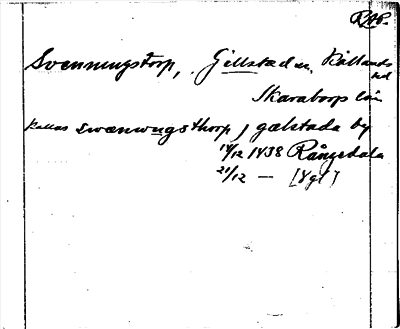 RAP.
Svenningstorp, Gillstad sn, Kållands
hd
Skaraborgs län
Kallas swenwngsthorp j gælstada by
14/12 1438 Rångedala
21/12 — [Vgl]